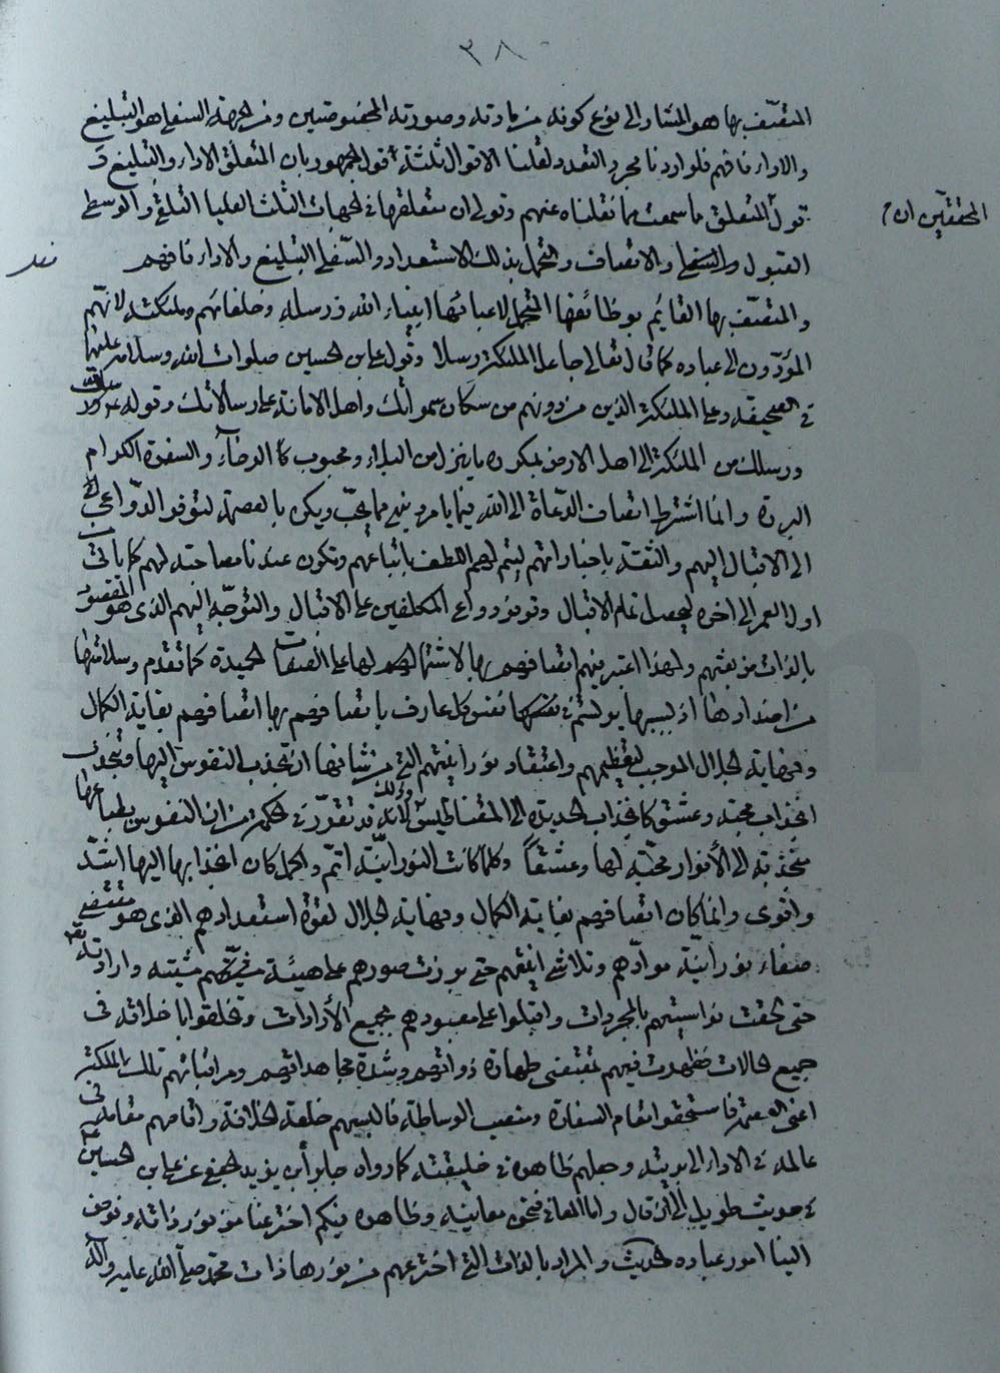 ٣٨
المتصف بها هو المشار الى نوع كونه من مادته وصورته المخصوصتين ومن الجهة السفلى هو التبليغ
والاداء فافهم فلو اردنا مجرد التعدد لقلنا الاقوال ثلثة قول الجمهور بان المتعلق الاداء والتبليغ و
قول المحققين ان المتعلق ما سمعت مما نقلناه عنهم وقولي ان متعلقها في الجهات الثلث العليا التلقي والوسطى
القبول والاتصاف والتحمل بذلك الاستعداد والسفلى التبليغ والاداء فافهم
والمتصف بها القايم بوظائفها المتحمل لاعبائها انبياء الله ورسله وخلفائهم وملئكته لانهم
المؤدون الى عباده كما قال تعالى جاعل الملئكة رسلا وقول علي بن الحسين صلوات الله وسلامه عليهما
في الصحيفة وعلى الملئكة الذين من دونهم من سكان سمواتك واهل الامانة على رسالاتك وقوله
ورسلك من الملئكة الى اهل الارض بمكروه ما ينزل من البلاء ومحبوب الرخاء والسفرة الكرام
البررة وانما اشترط اتصاف الدعاة الى الله فيما يامر وينهى مما يحب ويكره بالعصمة لتوفر الدواعي
الى الاقبال اليهم والثقة باخباراتهم ليتم لهم اللطف باتباعهم وتكون عندنا مصاحبة لهم
اول العمر الى اخره ليحصل تمام الاقبال وتوفر دواعي المكلفين على الاقبال والتوجه اليهم الذي هو المقصود
بالذات من بعثهم ولهذا اعتبر فيهم اتصافهم بها لاشتمالها على الصفات الحميدة كما تقدم وسلامتها
من اضدادها اذ بسببها يرتسم في نفس كل عارف باتصافهم بها اتصافهم بغاية الكمال
ونهاية الجلال الموجب لتعظيمهم واعتقاد نورانيتهم التي من شانها ان تجذب النفوس اليها وتنجذب
انجذاب محبة وعشق كانجذاب الحديدة الى المقناطيس وذلك لانه قد تقرر في الحكمة من ان النفوس بطباعها
منجذبة الى الأنوار محبة لها وعشقاً وكلما كانت النورانية اتم واكمل كان انجذابها اليها اشد
واقوى وانما كان اتصافهم بغاية الكمال ونهاية الجلال لقوة استعدادهم الذي هو مقتضى
صفاء نورانية موادهم وتلاشي انيتهم حتى برزت صورهم على هيئة مشيته وارادته
حتى لحقت نواسيتهم بالمجردات واقبلوا على معبودهم بجميع الأرادات وتخلقوا باخلاقه في
جميع الحالات فظهرت فيهم بمقتضى طهارة ذواتهم وشدة مجاهداتهم ومراقباتهم تلك الملكة
اعني العصمة فاستحقوا مقام السفارة ومنصب الوساطة فالبسهم خلعة الخلافة واقامهم مقامه في
عالمه في الاداء الى بريته وجعلهم ظاهره في خليقته كما رواه جابر بن يزيد الجعفي عن علي بن الحسين
في حديث طويل الى ان قال واما المعاني فنحن معانيه وظاهره فيكم اخترعنا من نور ذاته وفوض
الينا امور عباده الحديث والمراد بالذات التي اخترعهم من نورها ذات محمد صلى الله عليه واله